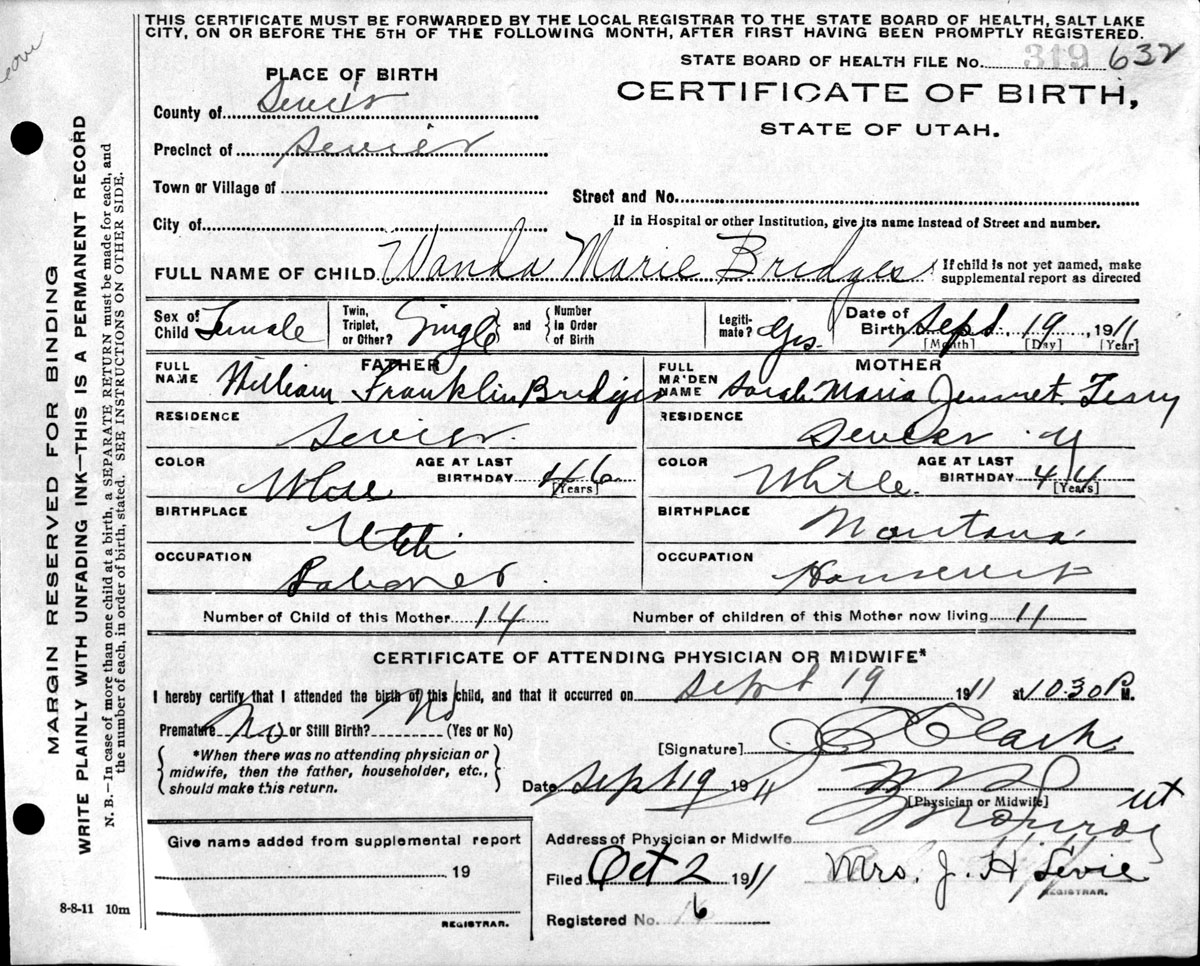 THIS CERTIFICATE MUST BE FORWARDED BY THE LOCAL REGISTRAR TO THE STATE BOARD OF HEALTH, SALT LAKE
CITY, ON OR BEFORE THE 5TH OF THE FOLLOWING MONTH, AFTER FIRST HAVING BEEN PROMPTLY REGISTERED.
STATE BOARD OF HEALTH FILE No. 319 632
PLACE OF BIRTH
CERTIFICATE OF BIRTH,
STATE OF UTAH.
County of Sevier
Precinct of Sevier
Town or Village of
Street and No.
City of
If in Hospital or other Institution, give its name instead of Street and number.
FULL NAME OF CHILD Wanda Marie Bridges { If child is not yet named, make
supplemental report as directed
Sex of Child Female
Twin, Triplet, or Other? Single and { Number in Order of Birth
Legitimate? Yes
Date of Birth Sept. 19, 1911
[Month] [Day] [Year]
FATHER
FULL NAME William Franklin Bridges
RESIDENCE Sevier
COLOR White AGE AT LAST BIRTHDAY 46 [Years]
BIRTHPLACE Utah
OCCUPATION Laborer
MOTHER
FULL MAIDEN NAME Sarah Maria Terry
RESIDENCE Sevier
COLOR White AGE AT LAST BIRTHDAY 44 [Years]
BIRTHPLACE Montana
OCCUPATION Housewife
Number of Child of this Mother 14 Number of children of this Mother now living 11
CERTIFICATE OF ATTENDING PHYSICIAN OR MIDWIFE*
I hereby certify that I attended the birth of this child, and that it occurred on Sept 19 1911 at 1030 P M.
Premature No or Still Birth? No (Yes or No)
*When there was no attending physician or
midwife, then the father, householder, etc.,
should make this return.
[Signature] Clark
Date Sept 19 1911
[Physician or Midwife]
Give name added from supplemental report
19
REGISTRAR.
Address of Physician or Midwife Monroe Ut
Filed Oct 2 1911 Mrs. J. H. Levie
REGISTRAR.
Registered No. 16
8-8-11 10m
MARGIN RESERVED FOR BINDING
WRITE PLAINLY WITH UNFADING INK—THIS IS A PERMANENT RECORD
N. B.—In case of more than one child at a birth, a SEPARATE RETURN must be made for each, and
the number of each, in order of birth, stated. SEE INSTRUCTIONS ON OTHER SIDE.